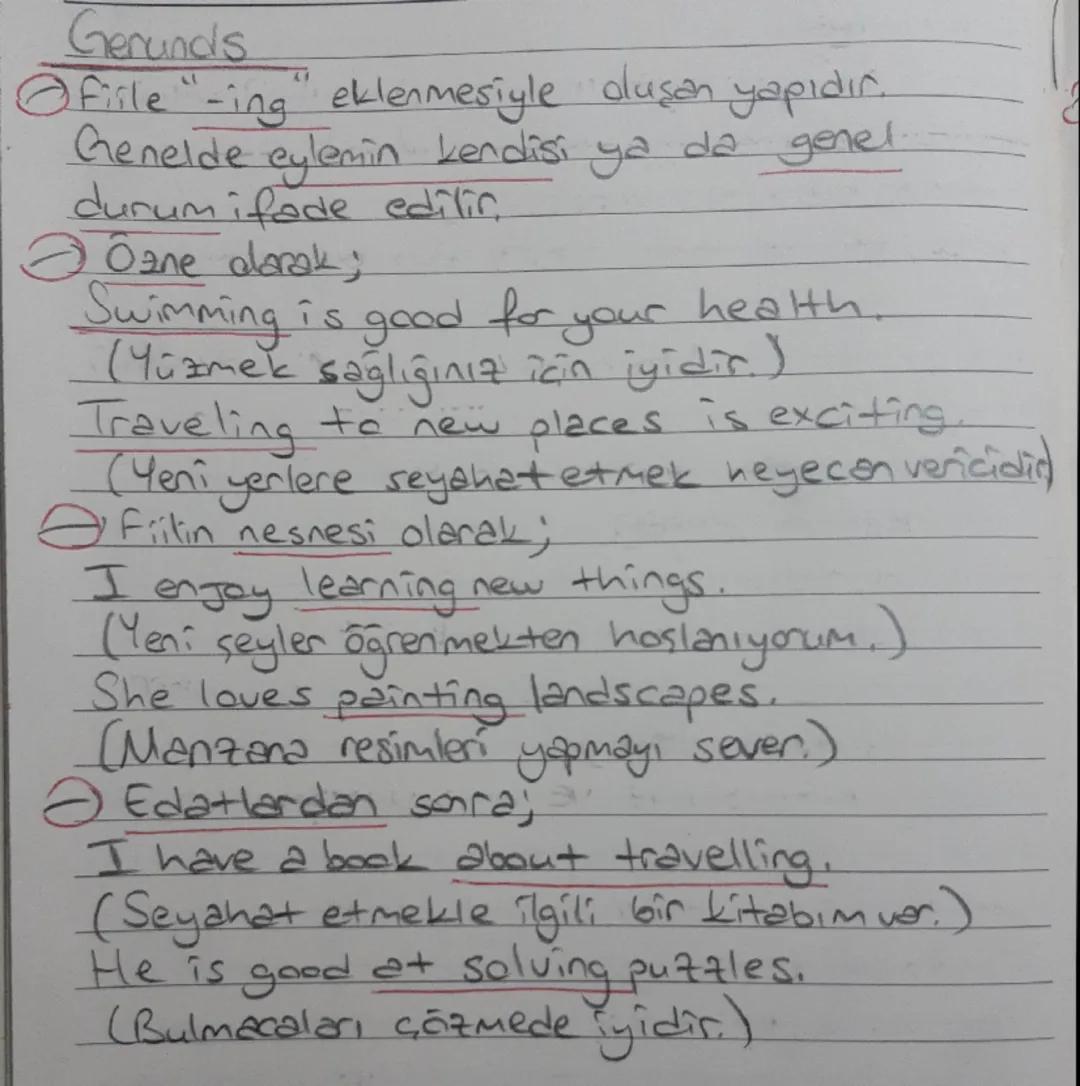 Gerunds
Fiile "-ing" eklenmesiyle oluşan yapıdır.
Genelde eylemin kendisi ya da genel
durum ifade edilir.
Özne olarak;
Swimming is good for your health.
(Yüzmek sağlığınız için iyidir.)
Traveling to new places is exciting.
(Yeni yerlere seyahat etmek heyecan vericidir)
Fiilin nesnesi olarak;
I enjoy learning new things.
(Yeni şeyler öğrenmekten hoşlanıyorum.)
She loves painting landscapes.
(Manzara resimleri yapmayı sever.)
Edatlardan sonra;
I have a book about travelling.
(Seyahat etmekle ilgili bir kitabım var.)
He is good at solving puzzles.
(Bulmacaları çözmede iyidir.)